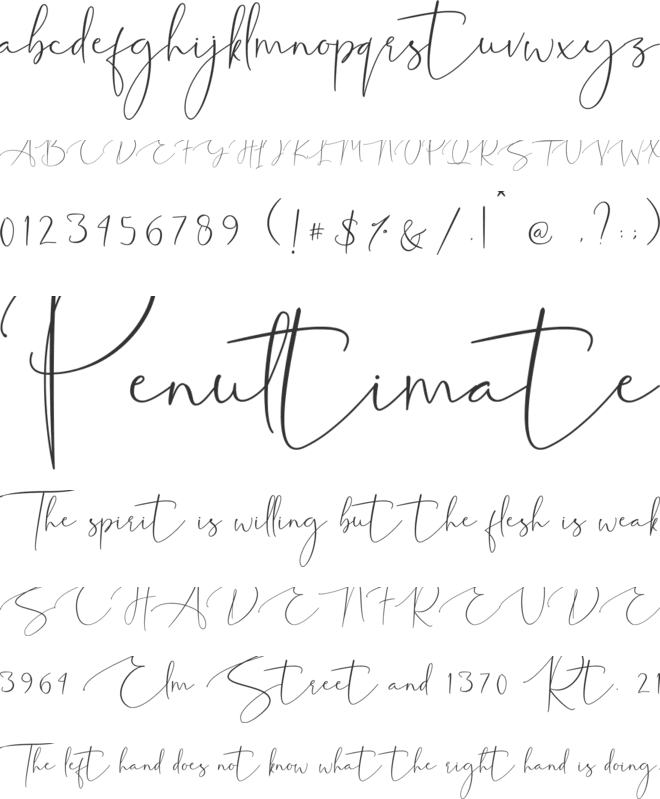 abcdefghijklmnopqrstuvwxyz
ABCDEFGHIJKLMNOPQRSTUVWX
0123456789 (!#$%&/.|^ @ ,?:;)
Penultimate
The spirit is willing but the flesh is weak
SCHADENFREUDE
3964 Elm Street and 1370 Rt. 21
The left hand does not know what the right hand is doing.